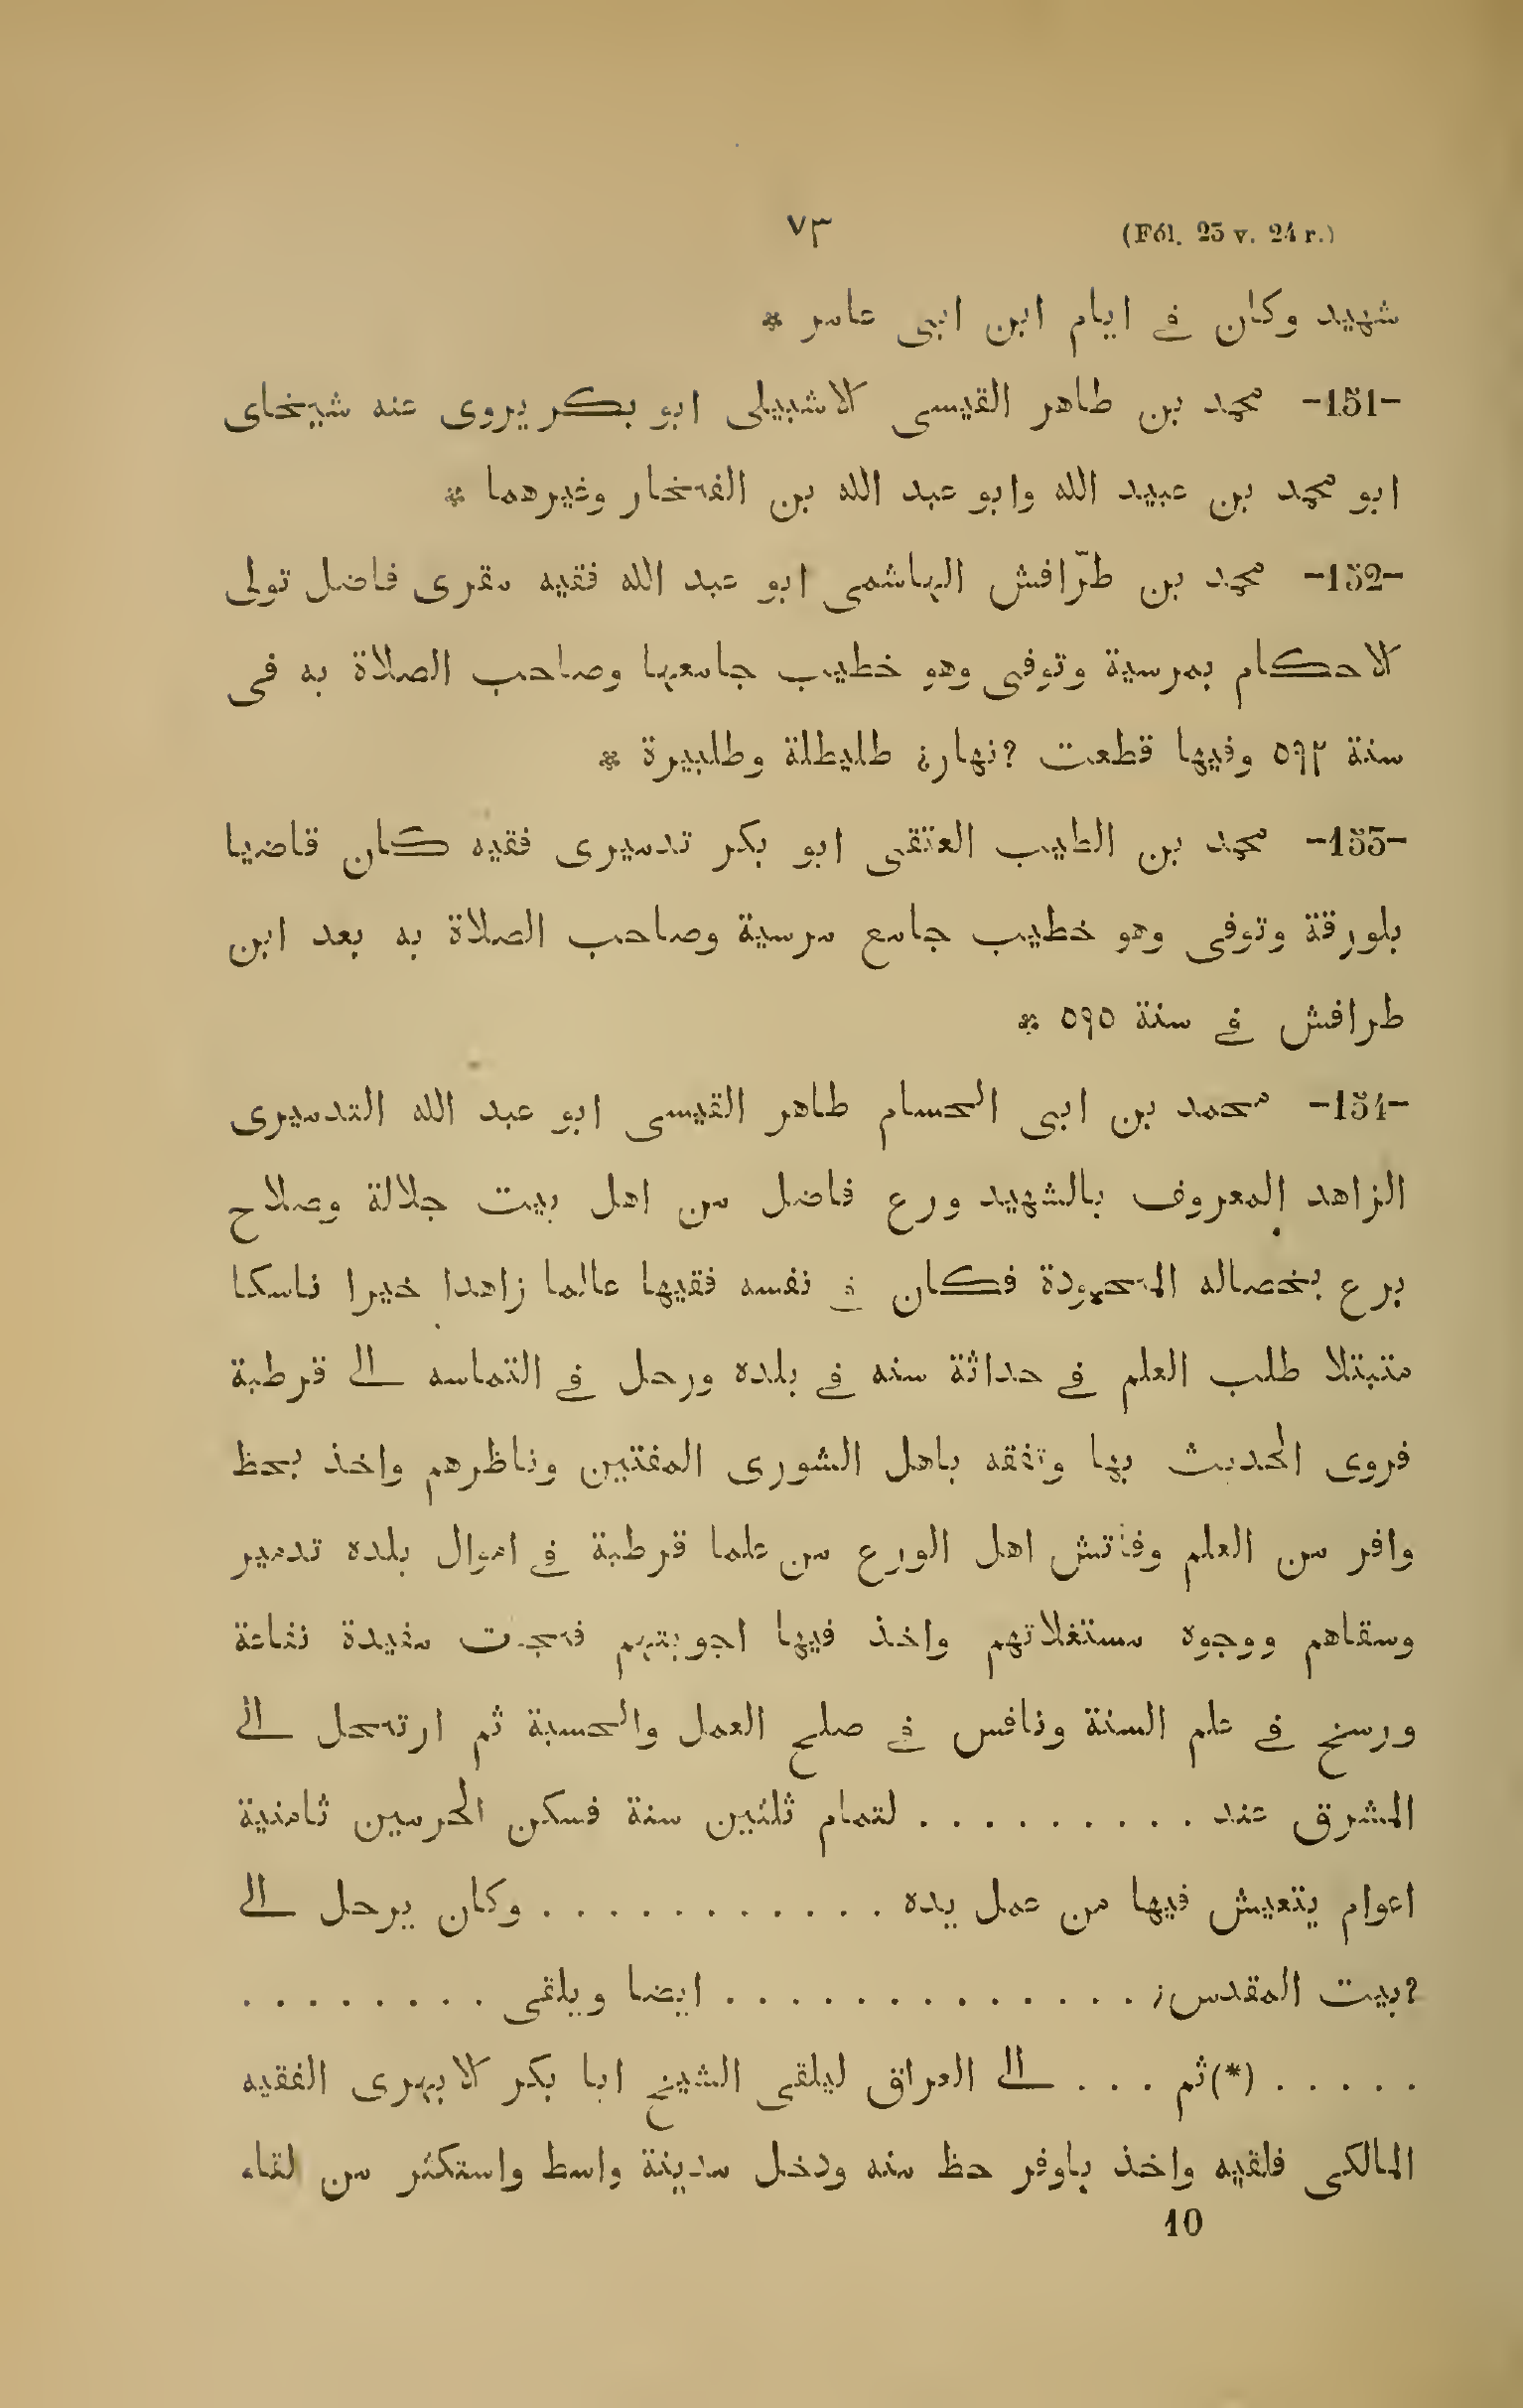 (Fól. 23 v. 24 r.) ٧٣
شهيد وكان فى ايام ابن ابى عامر *
-151- محمد بن طاهر القيسى الاشبيلى ابو بكر يروى عنه شيخاى
ابو محمد بن عبيد الله وابو عبد الله بن الفخار وغيرهما *
-152- محمد بن طرّافش الهاشمى ابو عبد الله فقيه مقرى فاضل تولى
الاحكام بمرسية وتوفى وهو خطيب جامعها وصاحب الصلاة به فى
سنة ٥٩٢ وفيها قطعت ?نهار¿ طليطلة وطلبيرة *
-153- محمد بن الطيب العتقى ابو بكر تدميرى فقيه كان قاضيا
بلورقة وتوفى وهو خطيب جامع مرسية وصاحب الصلاة به بعد ابن
طرافش فى سنة ٥٩٥ *
-154- محمد بن ابى الحسام طاهر القيسى ابو عبد الله التدميرى
الزاهد المعروف بالشهيد ورع فاضل من اهل بيت جلالة وصلاح
برع بخصاله المحمودة فكان فى نفسه فقيها عالما زاهدا خيرا ناسكا
متبتلا طلب العلم فى حداثة سنه فى بلده ورحل فى التماسه الى قرطبة
فروى الحديث بها وتفقه باهل الشورى المفتين وناظرهم واخذ بحظ
وافر من العلم وفاتش اهل الورع من علما قرطبة فى اموال بلده تدمير
وسقاهم ووجوه مستغلاتهم واخذ فيها اجوبتهم مفيدة نفاعة
ورسخ فى علم السنة ونافس فى صلح العمل والحسبة ثم ارتحل الى
المشرق عند . . . . . . . . . لتمام ثلثين سنة فسكن الحرمين ثامنية
اعوام يتعيش فيها من عمل يده . . . . . . . . . . . وكان يرحل الى
?بيت المقدس¿ . . . . . . . . . . . . . ايضا ويلقى . . . . . . . .
. . . . . (*)ثم . . . الى العراق ليلقى الشيخ ابا بكر الابهرى الفقيه
المالكى فلقيه واخذ باوفر حظ منه ودخل مدينة واسط واستكثر من لقاء
10